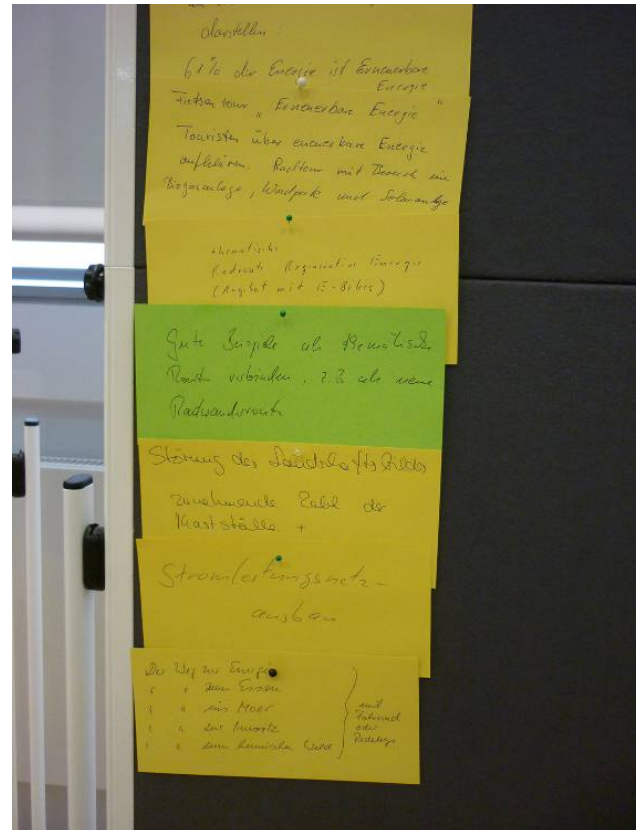 darstellen
61% der Energie ist Erneuerbare
Energie
Fietsentour "Erneuerbare Energie"
Touristen über erneuerbare Energie
aufklären. Radtour mit Besuch eine
Biogasanlage, Windpark und Solaranlage
thematische
Radroute Regenerative Energie
(Angebot mit E-Bikes)
Gute Beispiele als thematische
Route verbinden, z.B. als neue
Radwanderroute
Störung des Landschaftsbildes
zunehmende Zahl der
Mastställe +
Stromleitungsnetz-
ausbau
Der Weg zur Energie
" " zum Essen
" " ins Moor
" " zur
" " zum heimischen Wild
mit
Fahrrad
oder